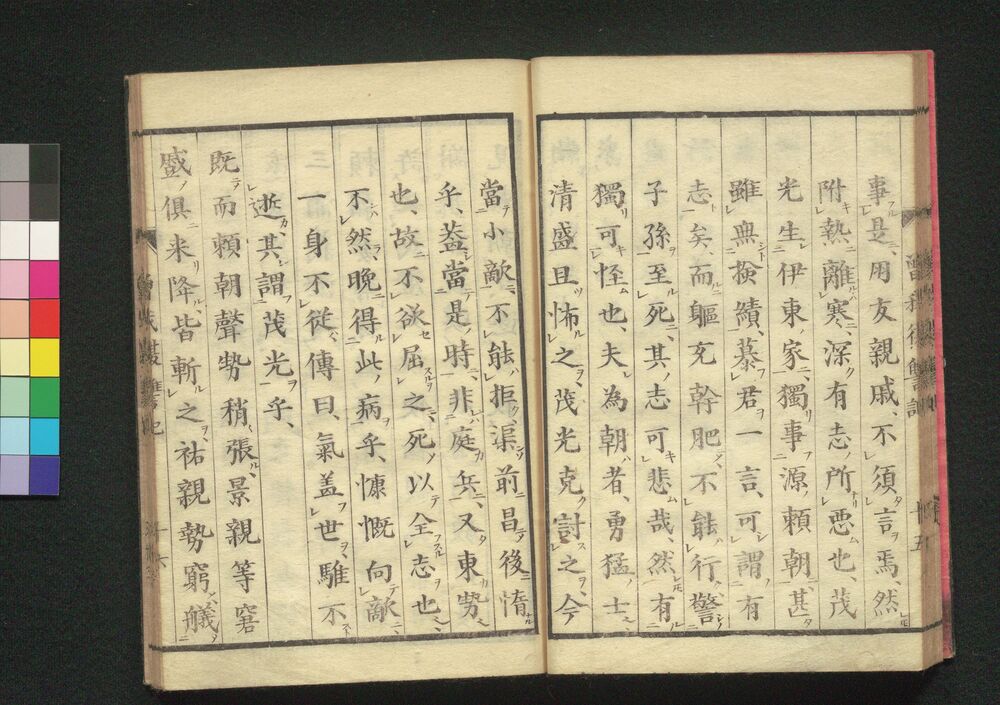 事是、用友親戚、不須言焉、然
附熱離寒、深有志所惡也、茂
光生伊東家、獨事源賴朝、甚
雖無換績、慕君一言、可謂有
志矣、而軀充幹肥、不能行、警
子孫至死、其志可悲哉、然有
獨可怪也、夫為朝者、勇猛士
清盛且怖之、茂光克討之、今
當小敵、不能拒渠、前昌後惰
乎、蓋當是時、非庭兵、又東勞
也、故不欲屈之、死以全志也、
不然、晚得此病乎、慷慨向敵、
一身不從、傳曰、氣蓋世、騅不
逝、其謂茂光乎、
既而賴朝聲勢稍張、景親等窘
蹙俱來降、皆斬之、祐親勢窮、艤